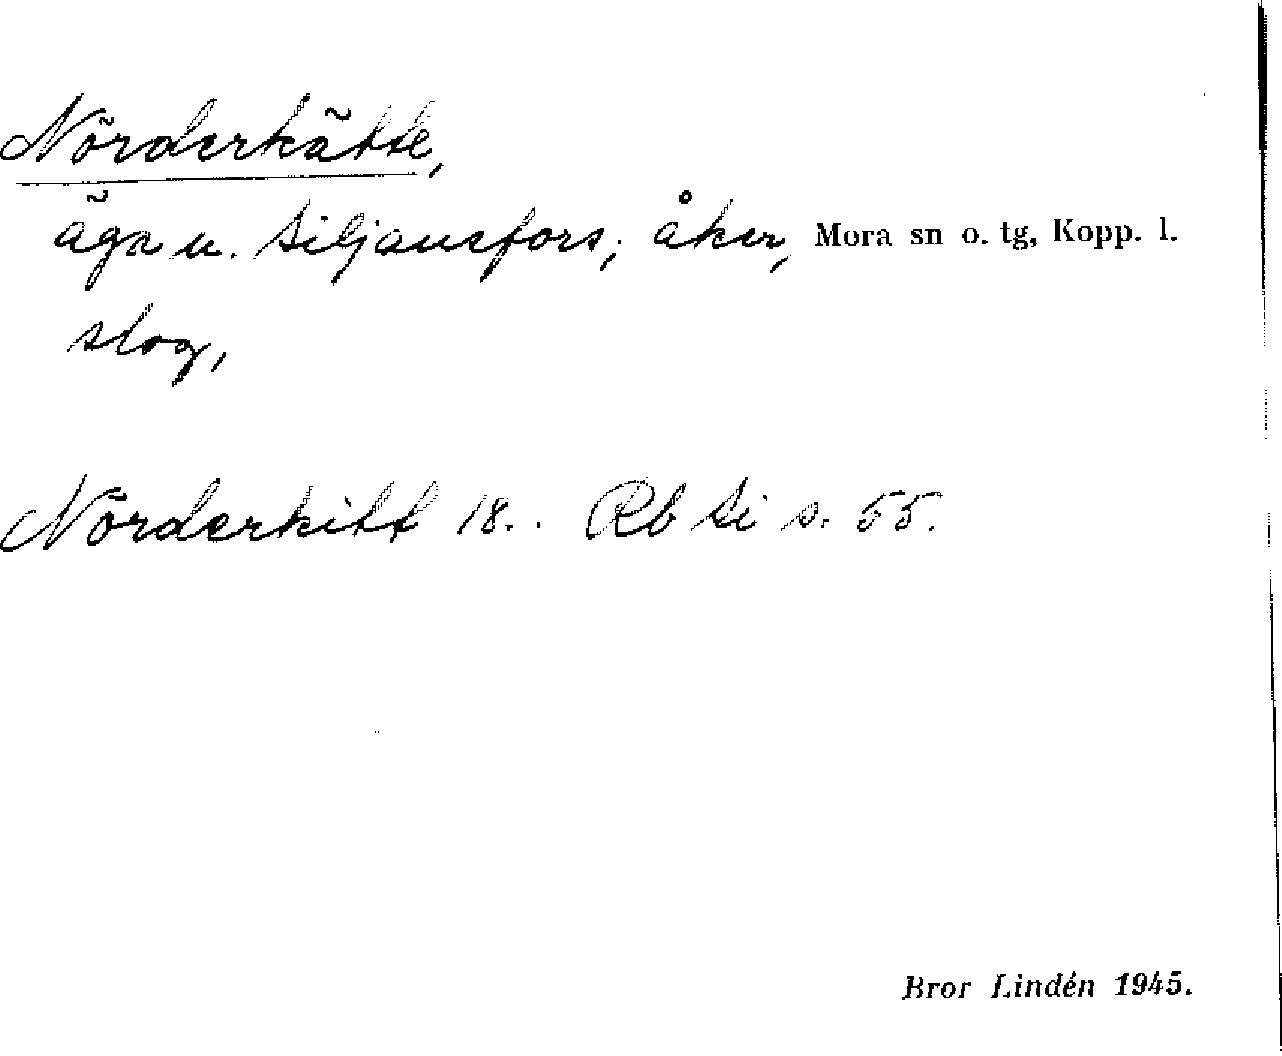 Nörderkätte,
äga u. Siljansfors; åker, Mora sn o. tg, Kopp. l.
slog,
Nörderkitt 18.. Rb Si s. 55.
Bror Lindén 1945.